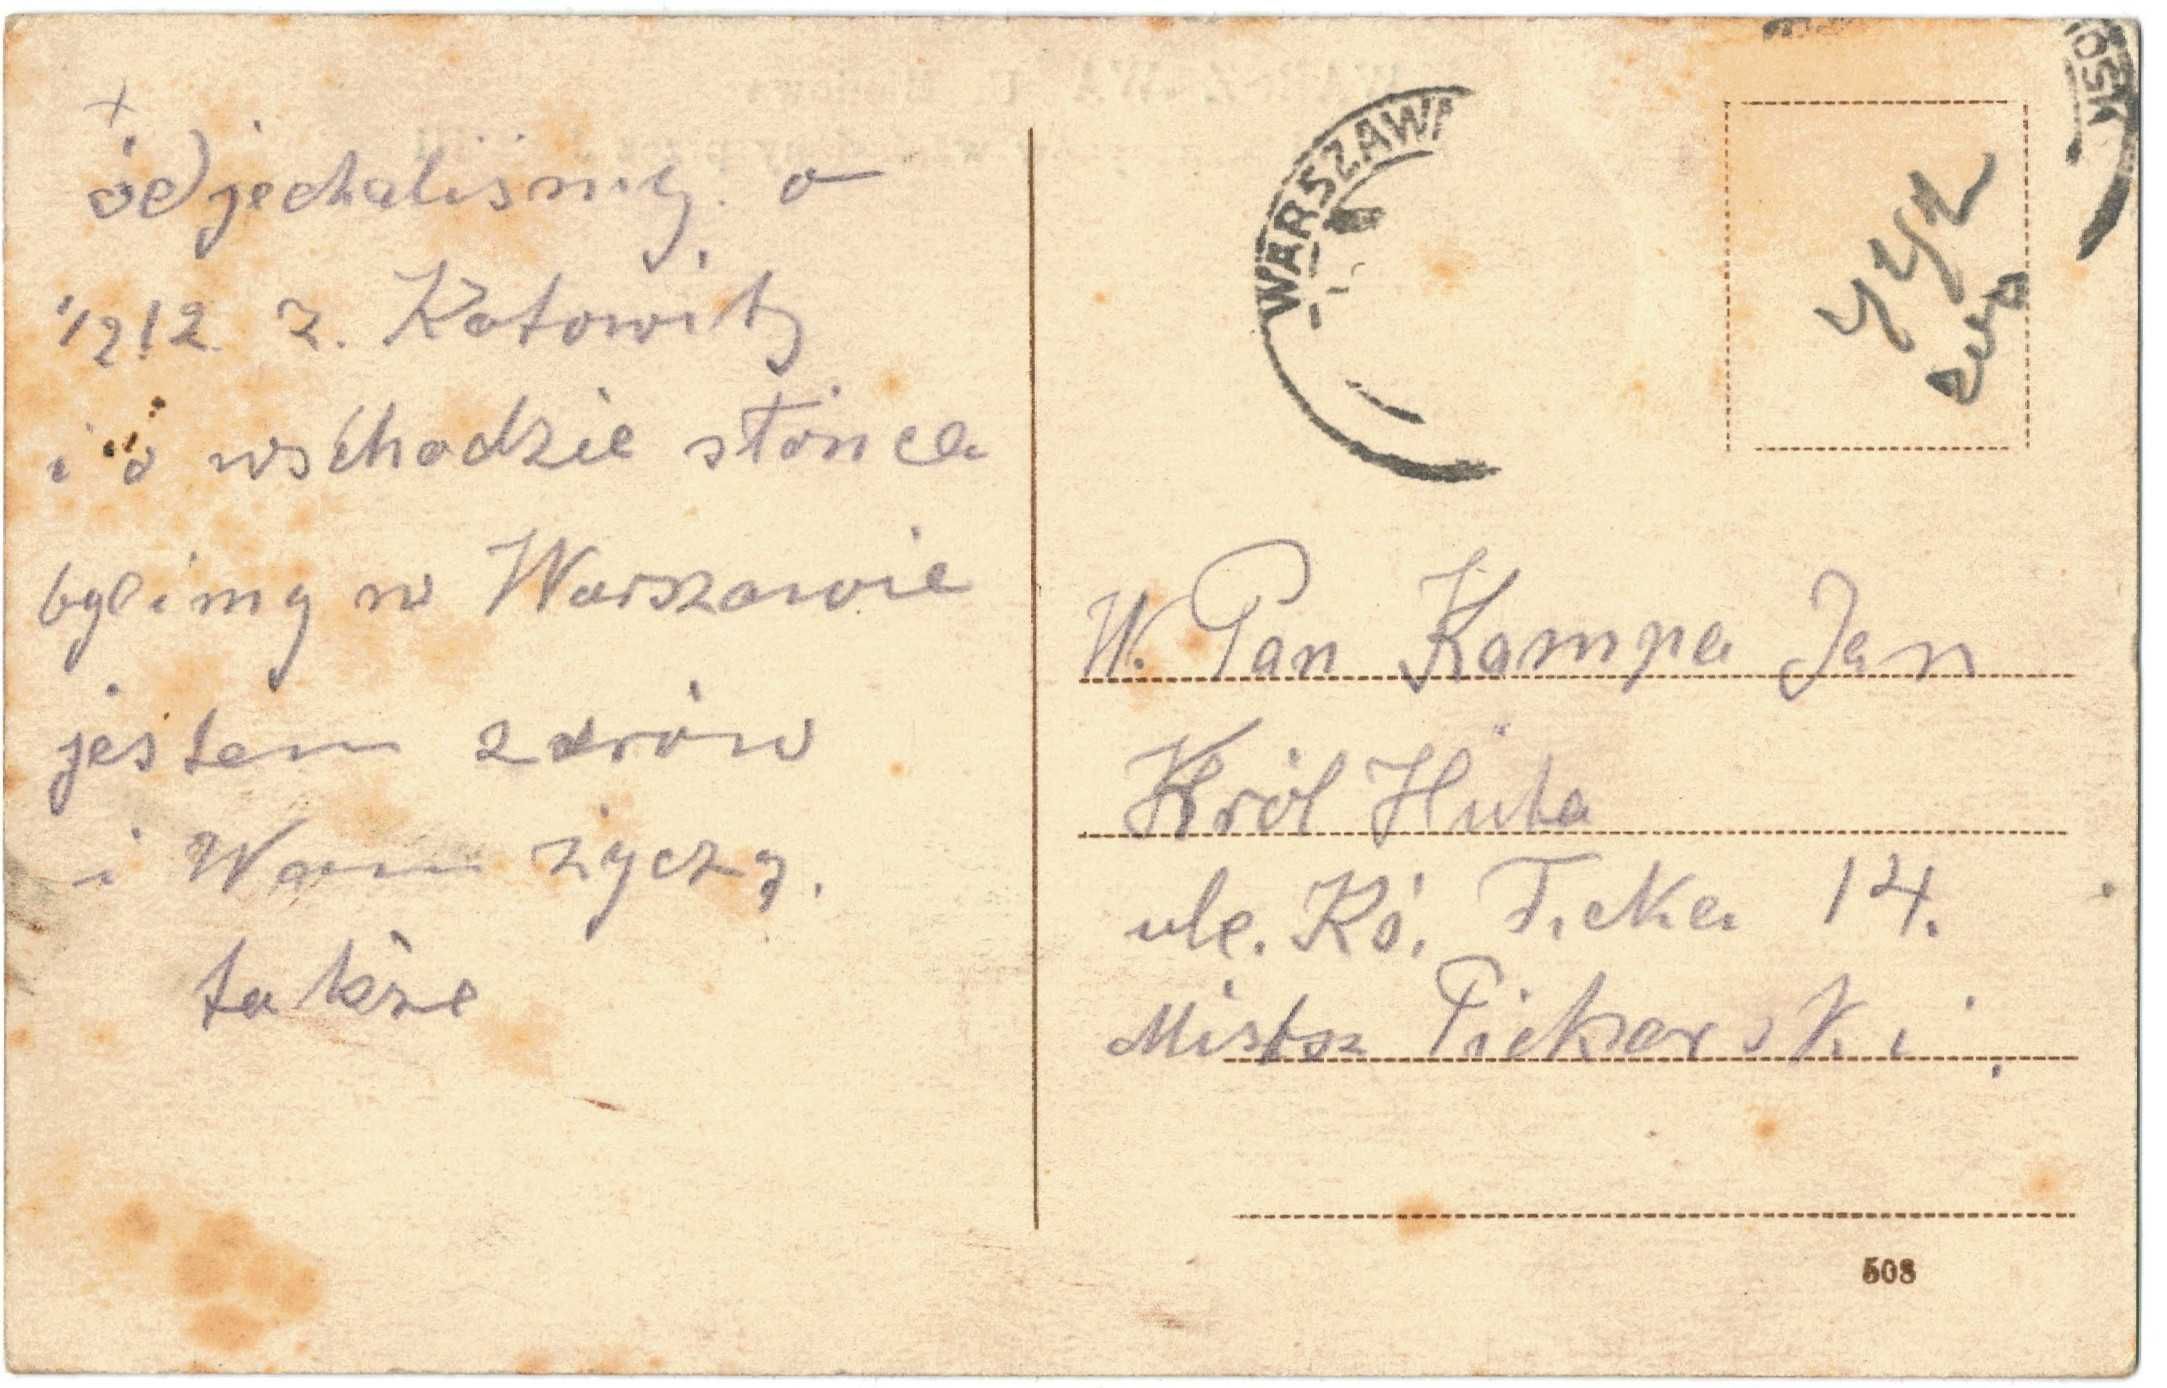 odjechaliśmy o
1/2 12 z. Katowitz
i o wschodzie słońca
bylimy w Warszawie
jestem zdrów
i Wam życzę.
także
WARSZAWA
W. Pan Kampa Jan
Król Huta
ulc. Ks. Ficka 14.
Mistsz Piekarski.
508